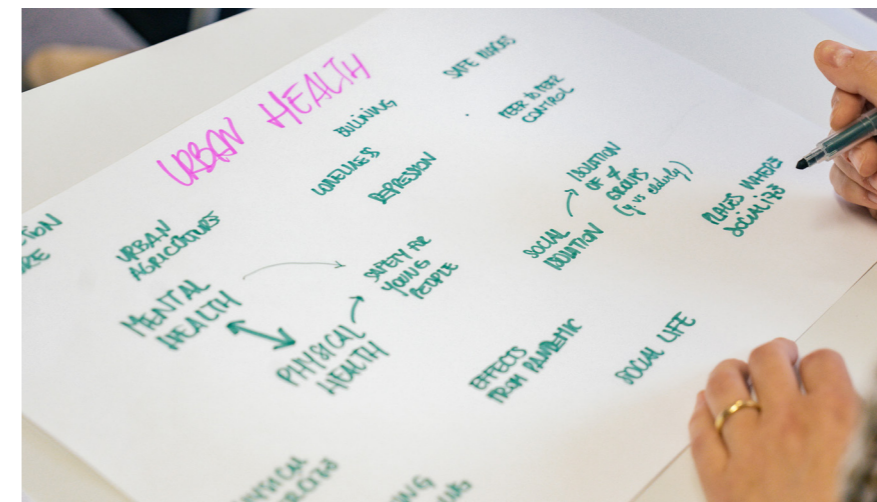 URBAN HEALTH
SAFE PLACES
BULLINING
PEER TO PEER
CONTROL
LONELINESS
DEPRESSION
ISOLATION
OF ≠
GROUPS
(y. vs elderly)
PLACES WHERE
SOCIALIZE
URBAN
AGRICULTURE
SOCIAL
ISOLATION
SAFETY FOR
YOUNG
PEOPLE
MENTAL
HEALTH
PHYSICAL
HEALTH
EFFECTS
FROM PANDEMIC
SOCIAL LIFE